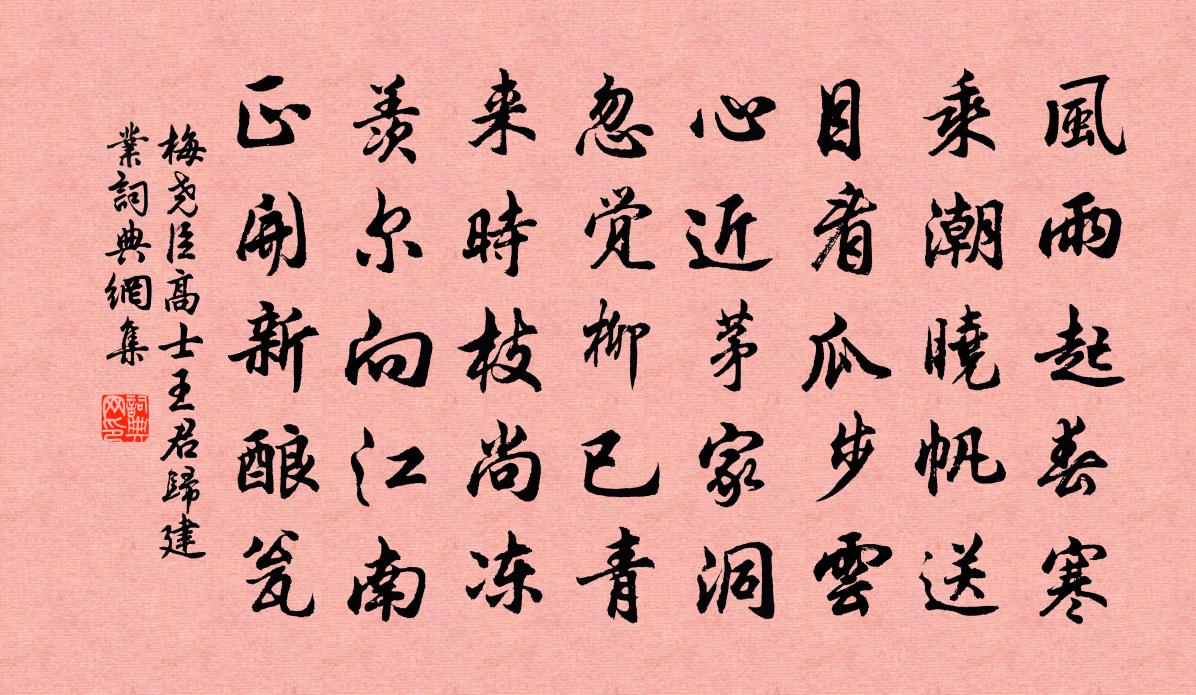 風雨起春寒
乘潮曉帆送
目看瓜步雲
心近茅家洞
忽觉柳已青
来時枝尚冻
羨尔向江南
正開新酿瓮
梅尧臣高士王君歸建
業詞典網集
詞典
网印